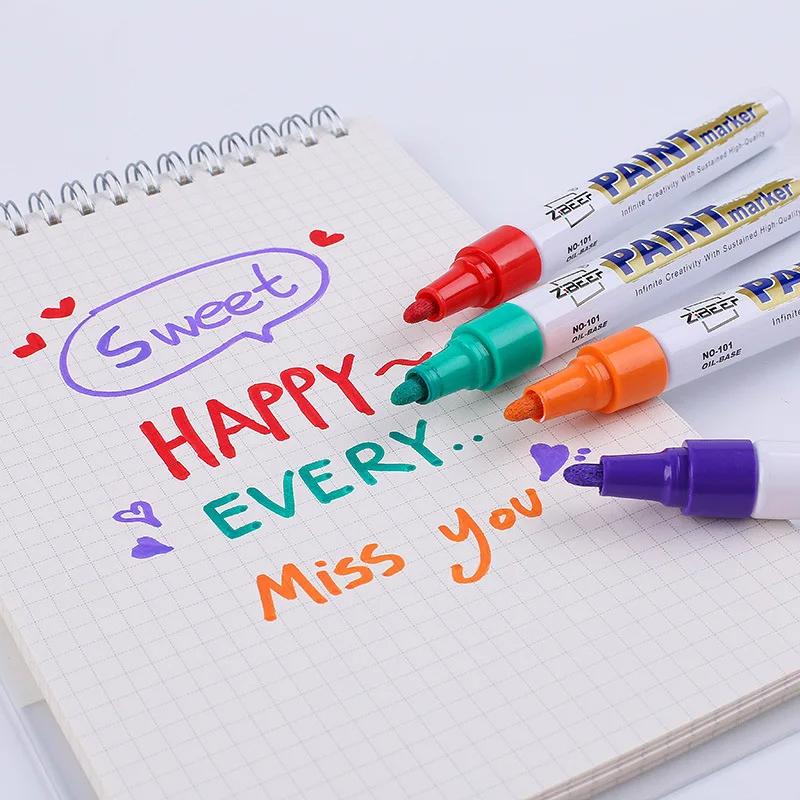 Sweet
HAPPY~
EVERY..
Miss You
ZiBEEF
PAINT marker
Infinite Creativity With Sustained High-Quality
NO-101
OIL-BASE
ZiBEEF
PAINT marker
Infinite Creativity With Sustained High-Quality
NO-101
OIL-BASE
ZiBEEF
PA
Infinite
NO-101
OIL-BASE